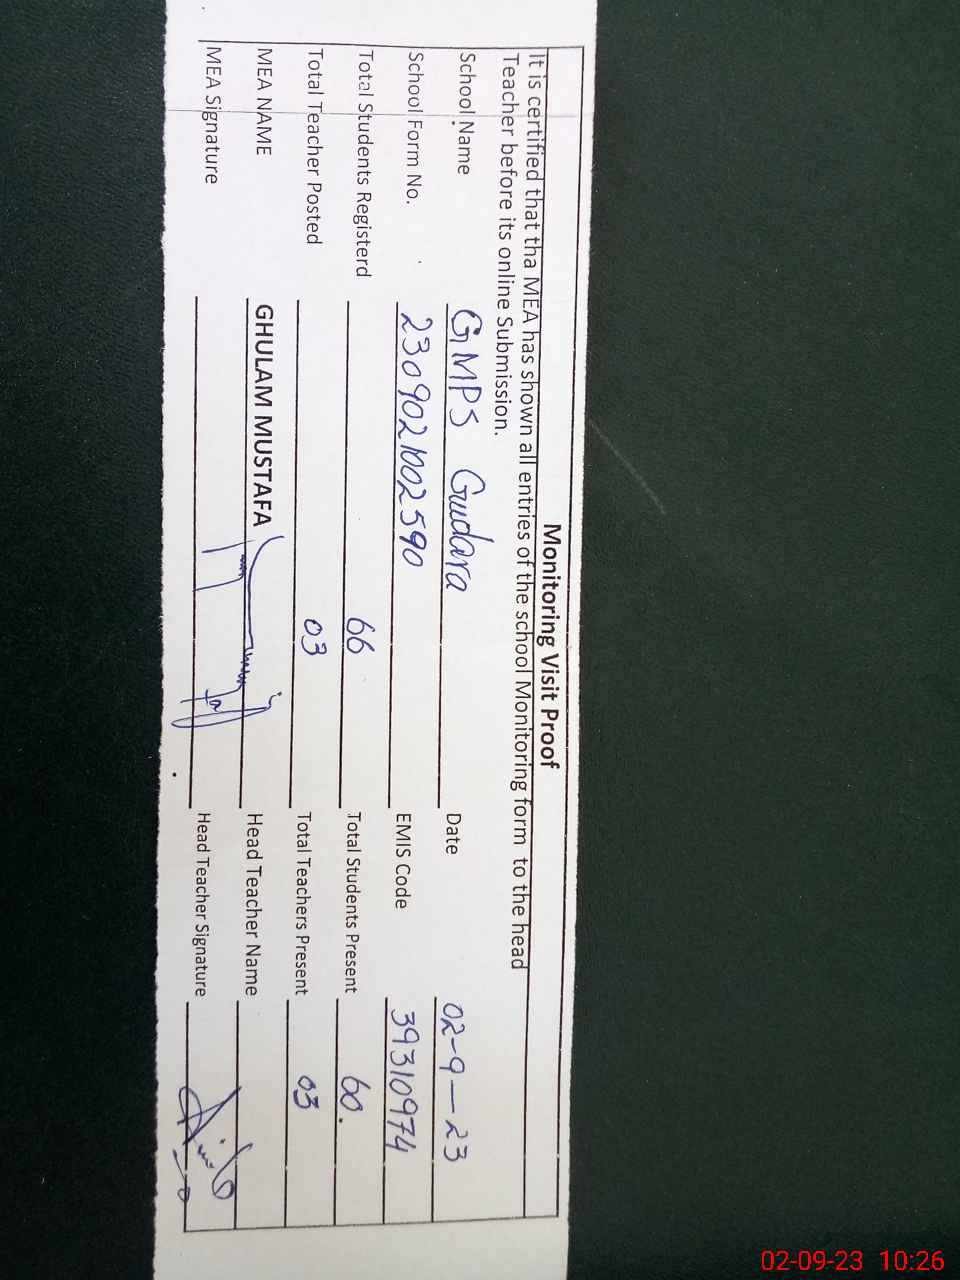 Monitoring Visit Proof
It is certified that tha MEA has shown all entries of the school Monitoring form to the head
Teacher before its online Submission.
School Name GMPS Gudara Date 02-9-23
School Form No. 2309021002590 EMIS Code 39310974
Total Students Registerd 66 Total Students Present 60.
Total Teacher Posted 03 Total Teachers Present 03
MEA NAME GHULAM MUSTAFA Head Teacher Name
MEA Signature Head Teacher Signature
02-09-23 10:26